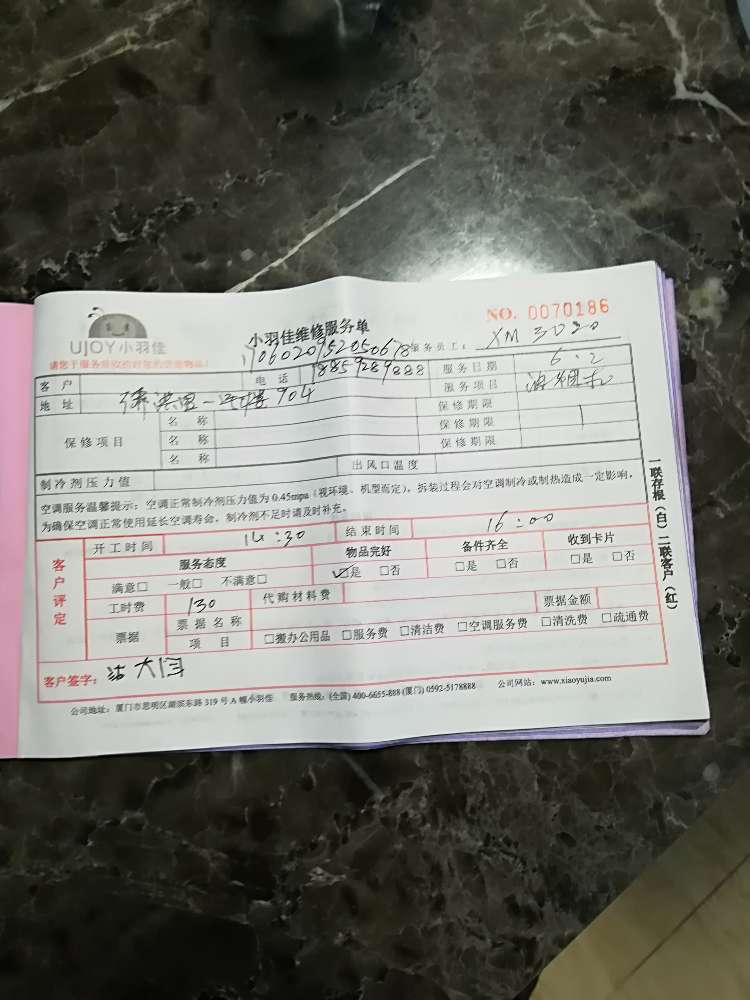 UJOY小羽佳
小羽佳维修服务单
NO. 0070186
请您于服务前收拾好您的贵重物品!
服务员工: XM 3020
客户 电话 18859289888 服务日期 6:2
地址 一号楼904 服务项目 油烟机
保修项目 名称 保修期限
名称 保修期限
名称 保修期限
制冷剂压力值 出风口温度
空调服务温馨提示: 空调正常制冷剂压力值为 0.45mpa (视环境、机型而定), 拆装过程会对空调制冷或制热造成一定影响,
为确保空调正常使用延长空调寿命, 制冷剂不足时请及时补充。
客户评定
开工时间 14:30 结束时间 16:00
服务态度 物品完好 备件齐全 收到卡片
满意□ 一般□ 不满意□ ☑是 □否 □是 □否 □是 □否
工时费 130 代购材料费 票据金额
票据 票据名称
项目 □搬办公用品 □服务费 □清洁费 □空调服务费 □清洗费 □疏通费
客户签字:
公司地址: 厦门市思明区湖滨东路 319 号 A 幢小羽佳 服务热线: (全国) 400-6655-888 (厦门) 0592-5178888 公司网站: www.xiaoyujia.com
一联存根(白) 二联客户(红)